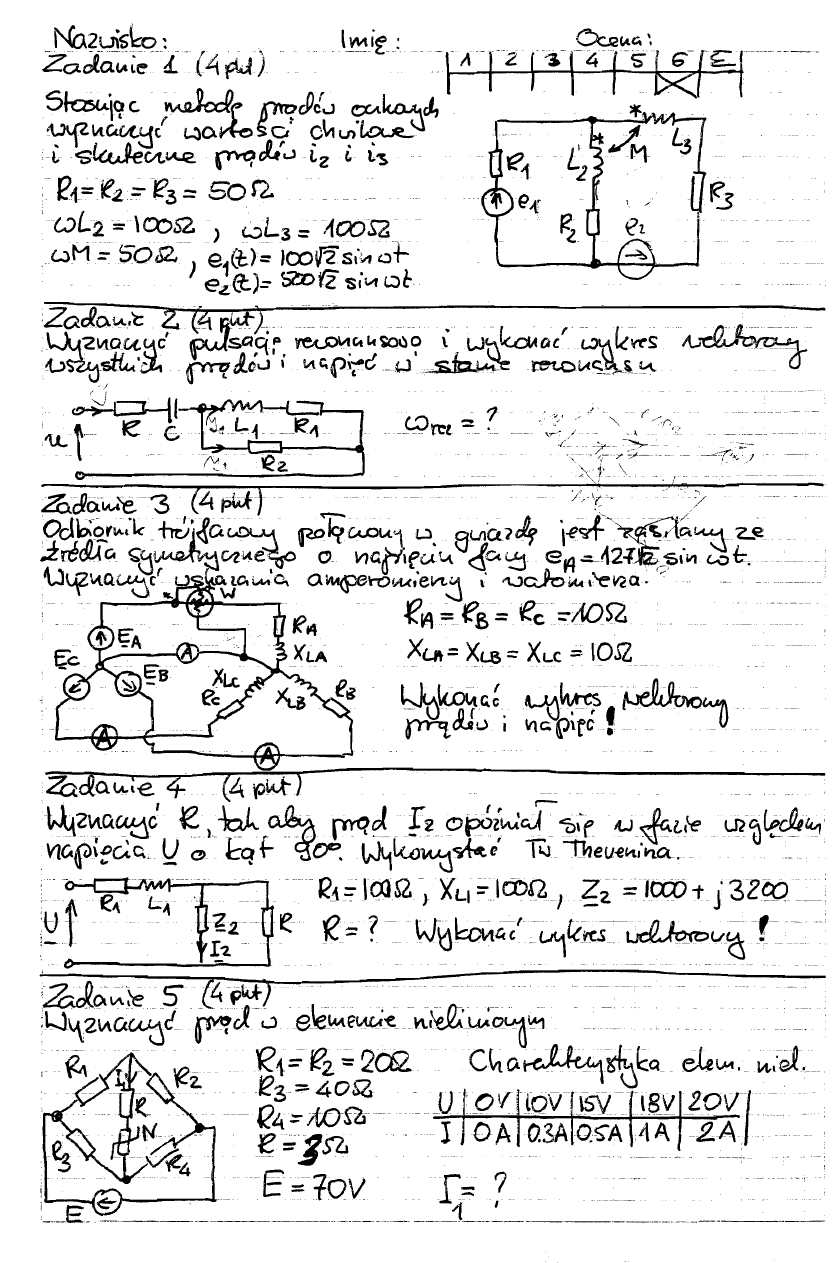 Nazwisko: Imię: Ocena:
Zadanie 1 (4 pkt)
1 2 3 4 5 6 Σ
Stosując metodę prądów oczkowych
wyznaczyć wartości chwilowe
i skuteczne prądów i2 i i3
R1 = R2 = R3 = 50Ω
ωL2 = 100Ω , ωL3 = 100Ω
ωM = 50Ω , e1(t) = 100√2 sin ωt
e2(t) = 500√2 sin ωt
* * L3
R1 L2 M
e1 R3
R2 e2
Zadanie 2 (4 pkt)
Wyznaczyć pulsację rezonansową i wykonać wykres wektorowy
wszystkich prądów i napięć w stanie rezonansu
R C L1 R1
u R2
ωrez = ?
Zadanie 3 (4 pkt)
Odbiornik trójfazowy połączony w gwiazdę jest zasilany ze
źródła symetrycznego o napięciu fazy eA = 127√2 sin ωt.
Wyznaczyć wskazania amperomierzy i watomierza.
* W
EA RA
A XLA
EC EB
XLC XLB RB
RC
A
A
RA = RB = RC = 10Ω
XLA = XLB = XLC = 10Ω
Wykonać wykres wektorowy
prądów i napięć !
Zadanie 4 (4 pkt)
Wyznaczyć R, tak aby prąd I2 opóźniał się w fazie względem
napięcia U o kąt 90°. Wykorzystać Tw Thevenina.
R1 L1
U Z2 R
I2
R1 = 100Ω , XL1 = 100Ω , Z2 = 1000 + j 3200
R = ? Wykonać wykres wektorowy !
Zadanie 5 (4 pkt)
Wyznaczyć prąd w elemencie nieliniowym
R1 I1 R2
R
UN
R3 R4
E
R1 = R2 = 20Ω
R3 = 40Ω
R4 = 10Ω
R = 3Ω
E = 70V
Charakterystyka elem. niel.
U 0V 10V 15V 18V 20V
I 0A 0.3A 0.5A 1A 2A
I1 = ?